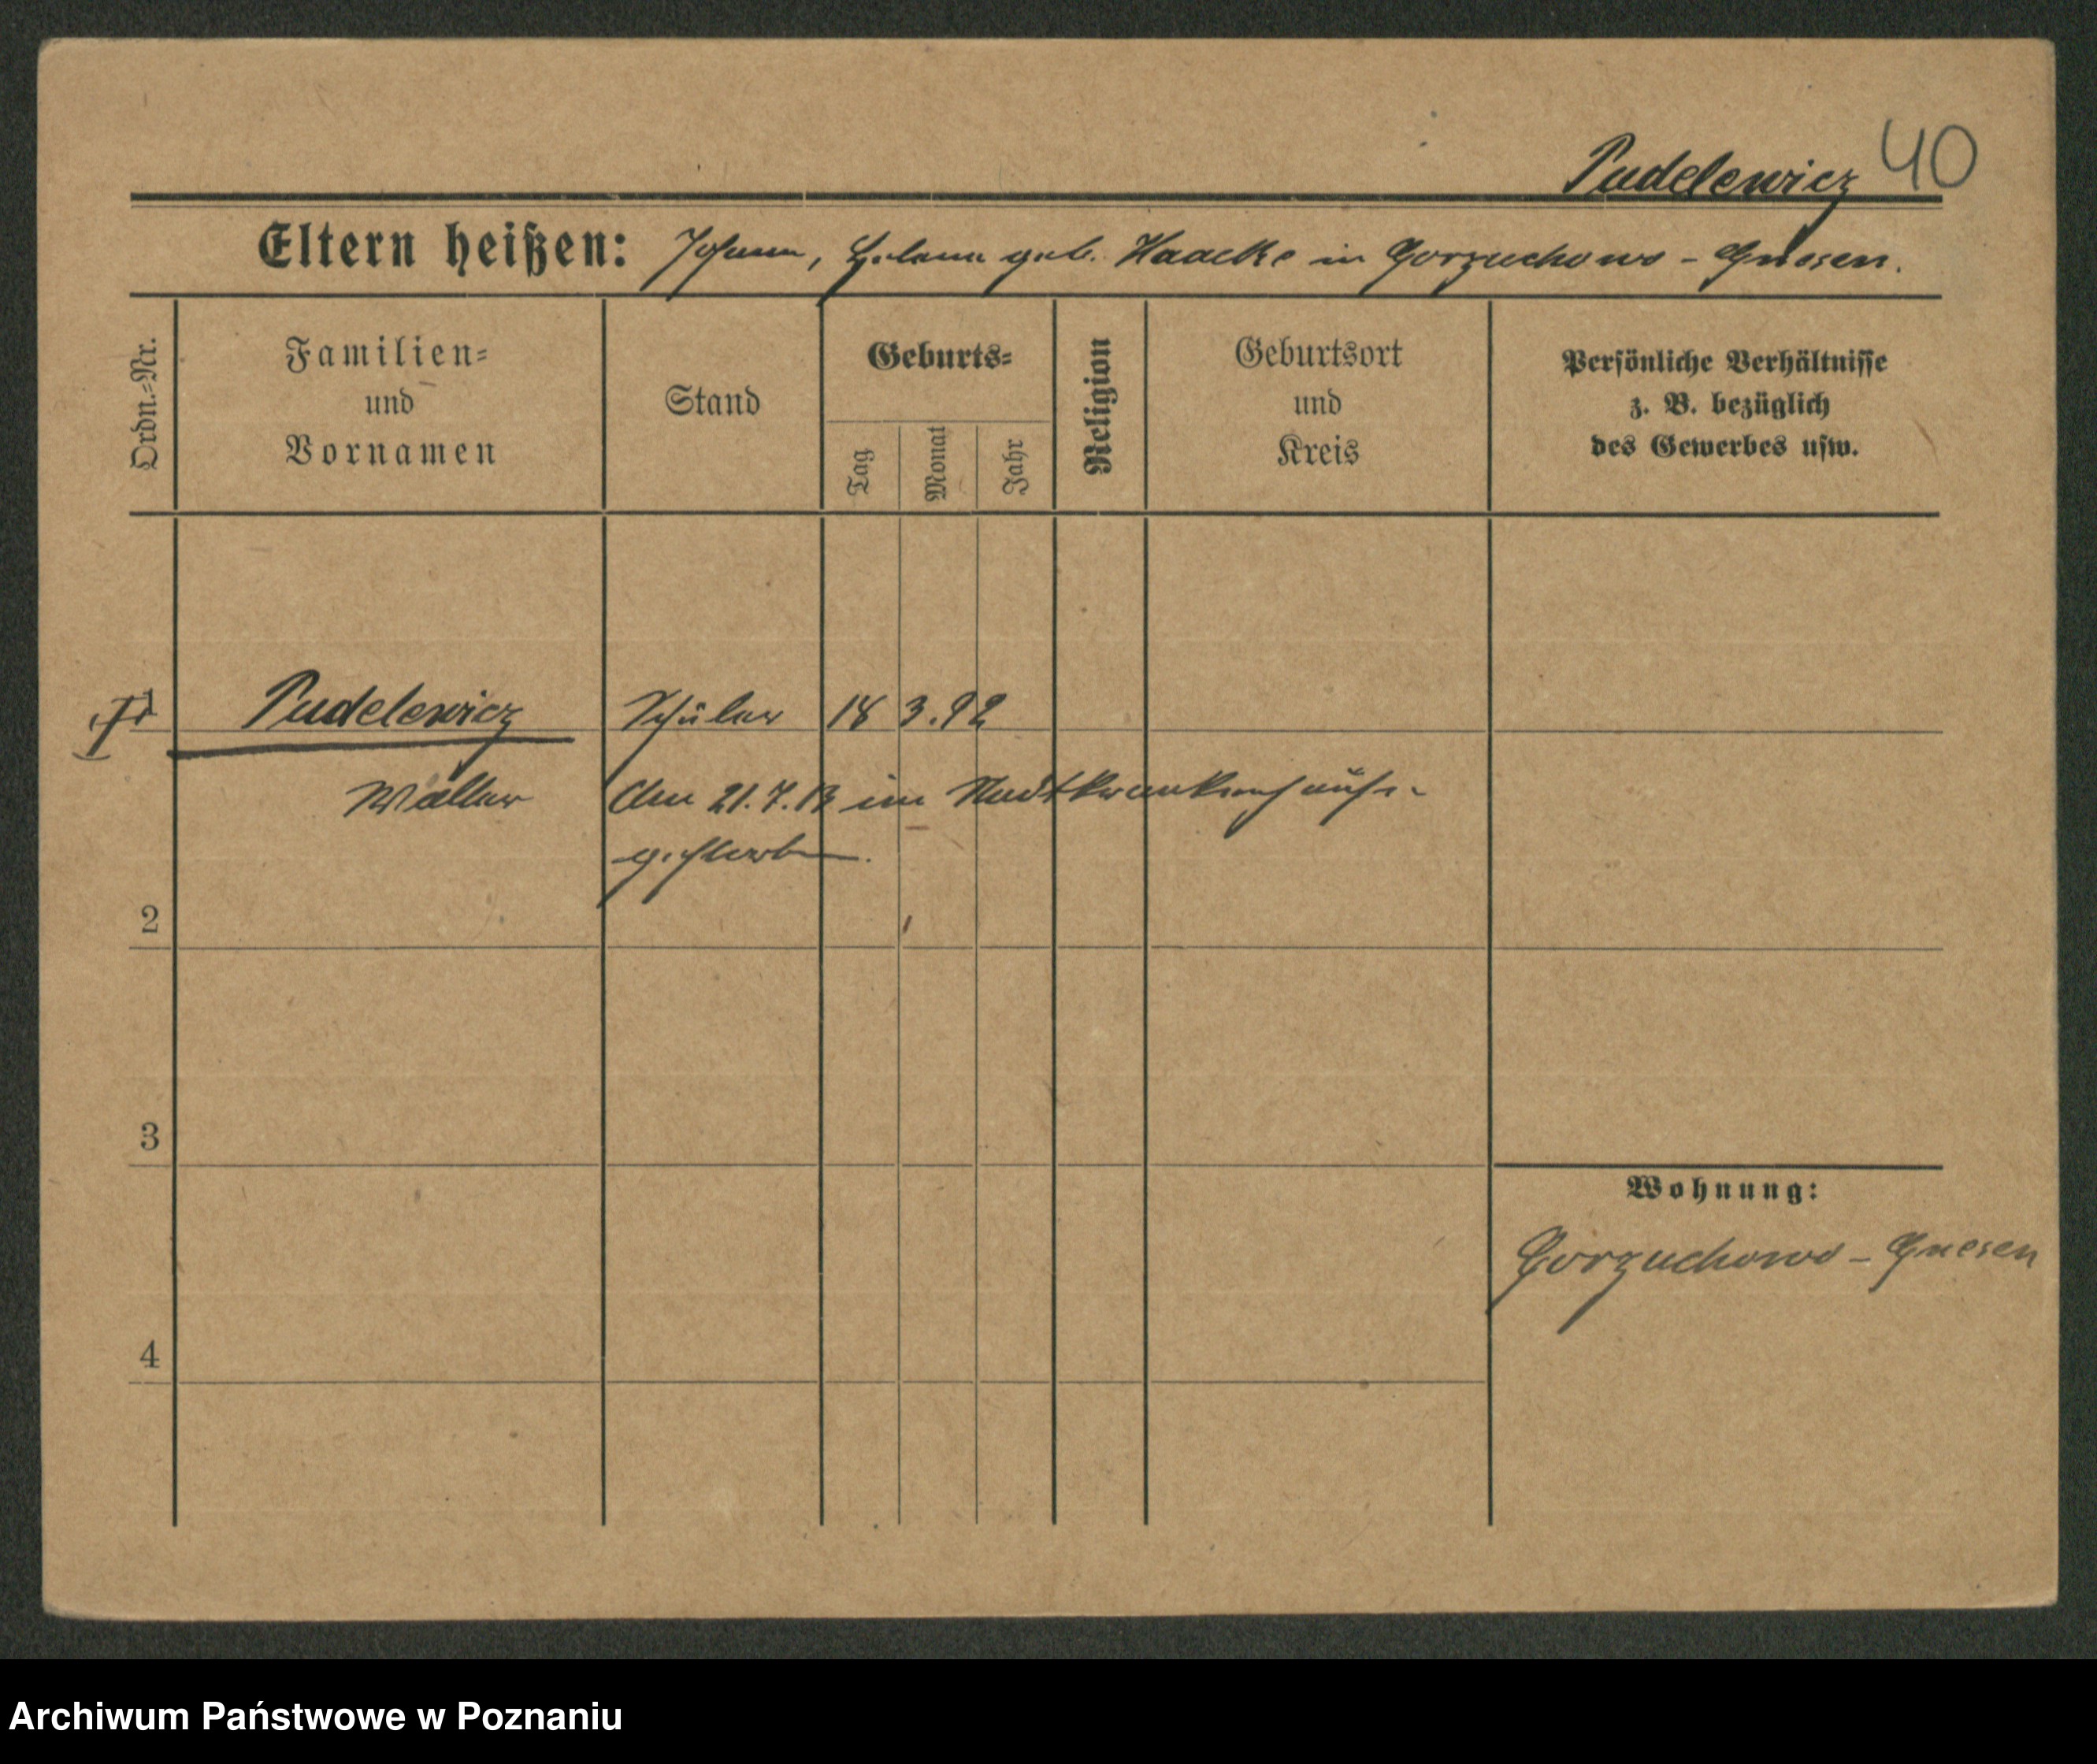 Pudelewicz 40
Eltern heißen: Johann, Helene geb. Haacke in Gorzuchowo - Gnesen.
Ordn.-Nr.
Familien-
und
Vornamen
Stand
Geburts-
Tag
Monat
Jahr
Religion
Geburtsort
und
Kreis
Persönliche Verhältnisse
z. B. bezüglich
des Gewerbes usw.
Pudelewicz Schüler 18 3. 92
Walter Am 21. 7. 13 im Stadtkrankenhause
gestorben.
2
3
4
Wohnung:
Gorzuchowo - Gnesen
Archiwum Państwowe w Poznaniu